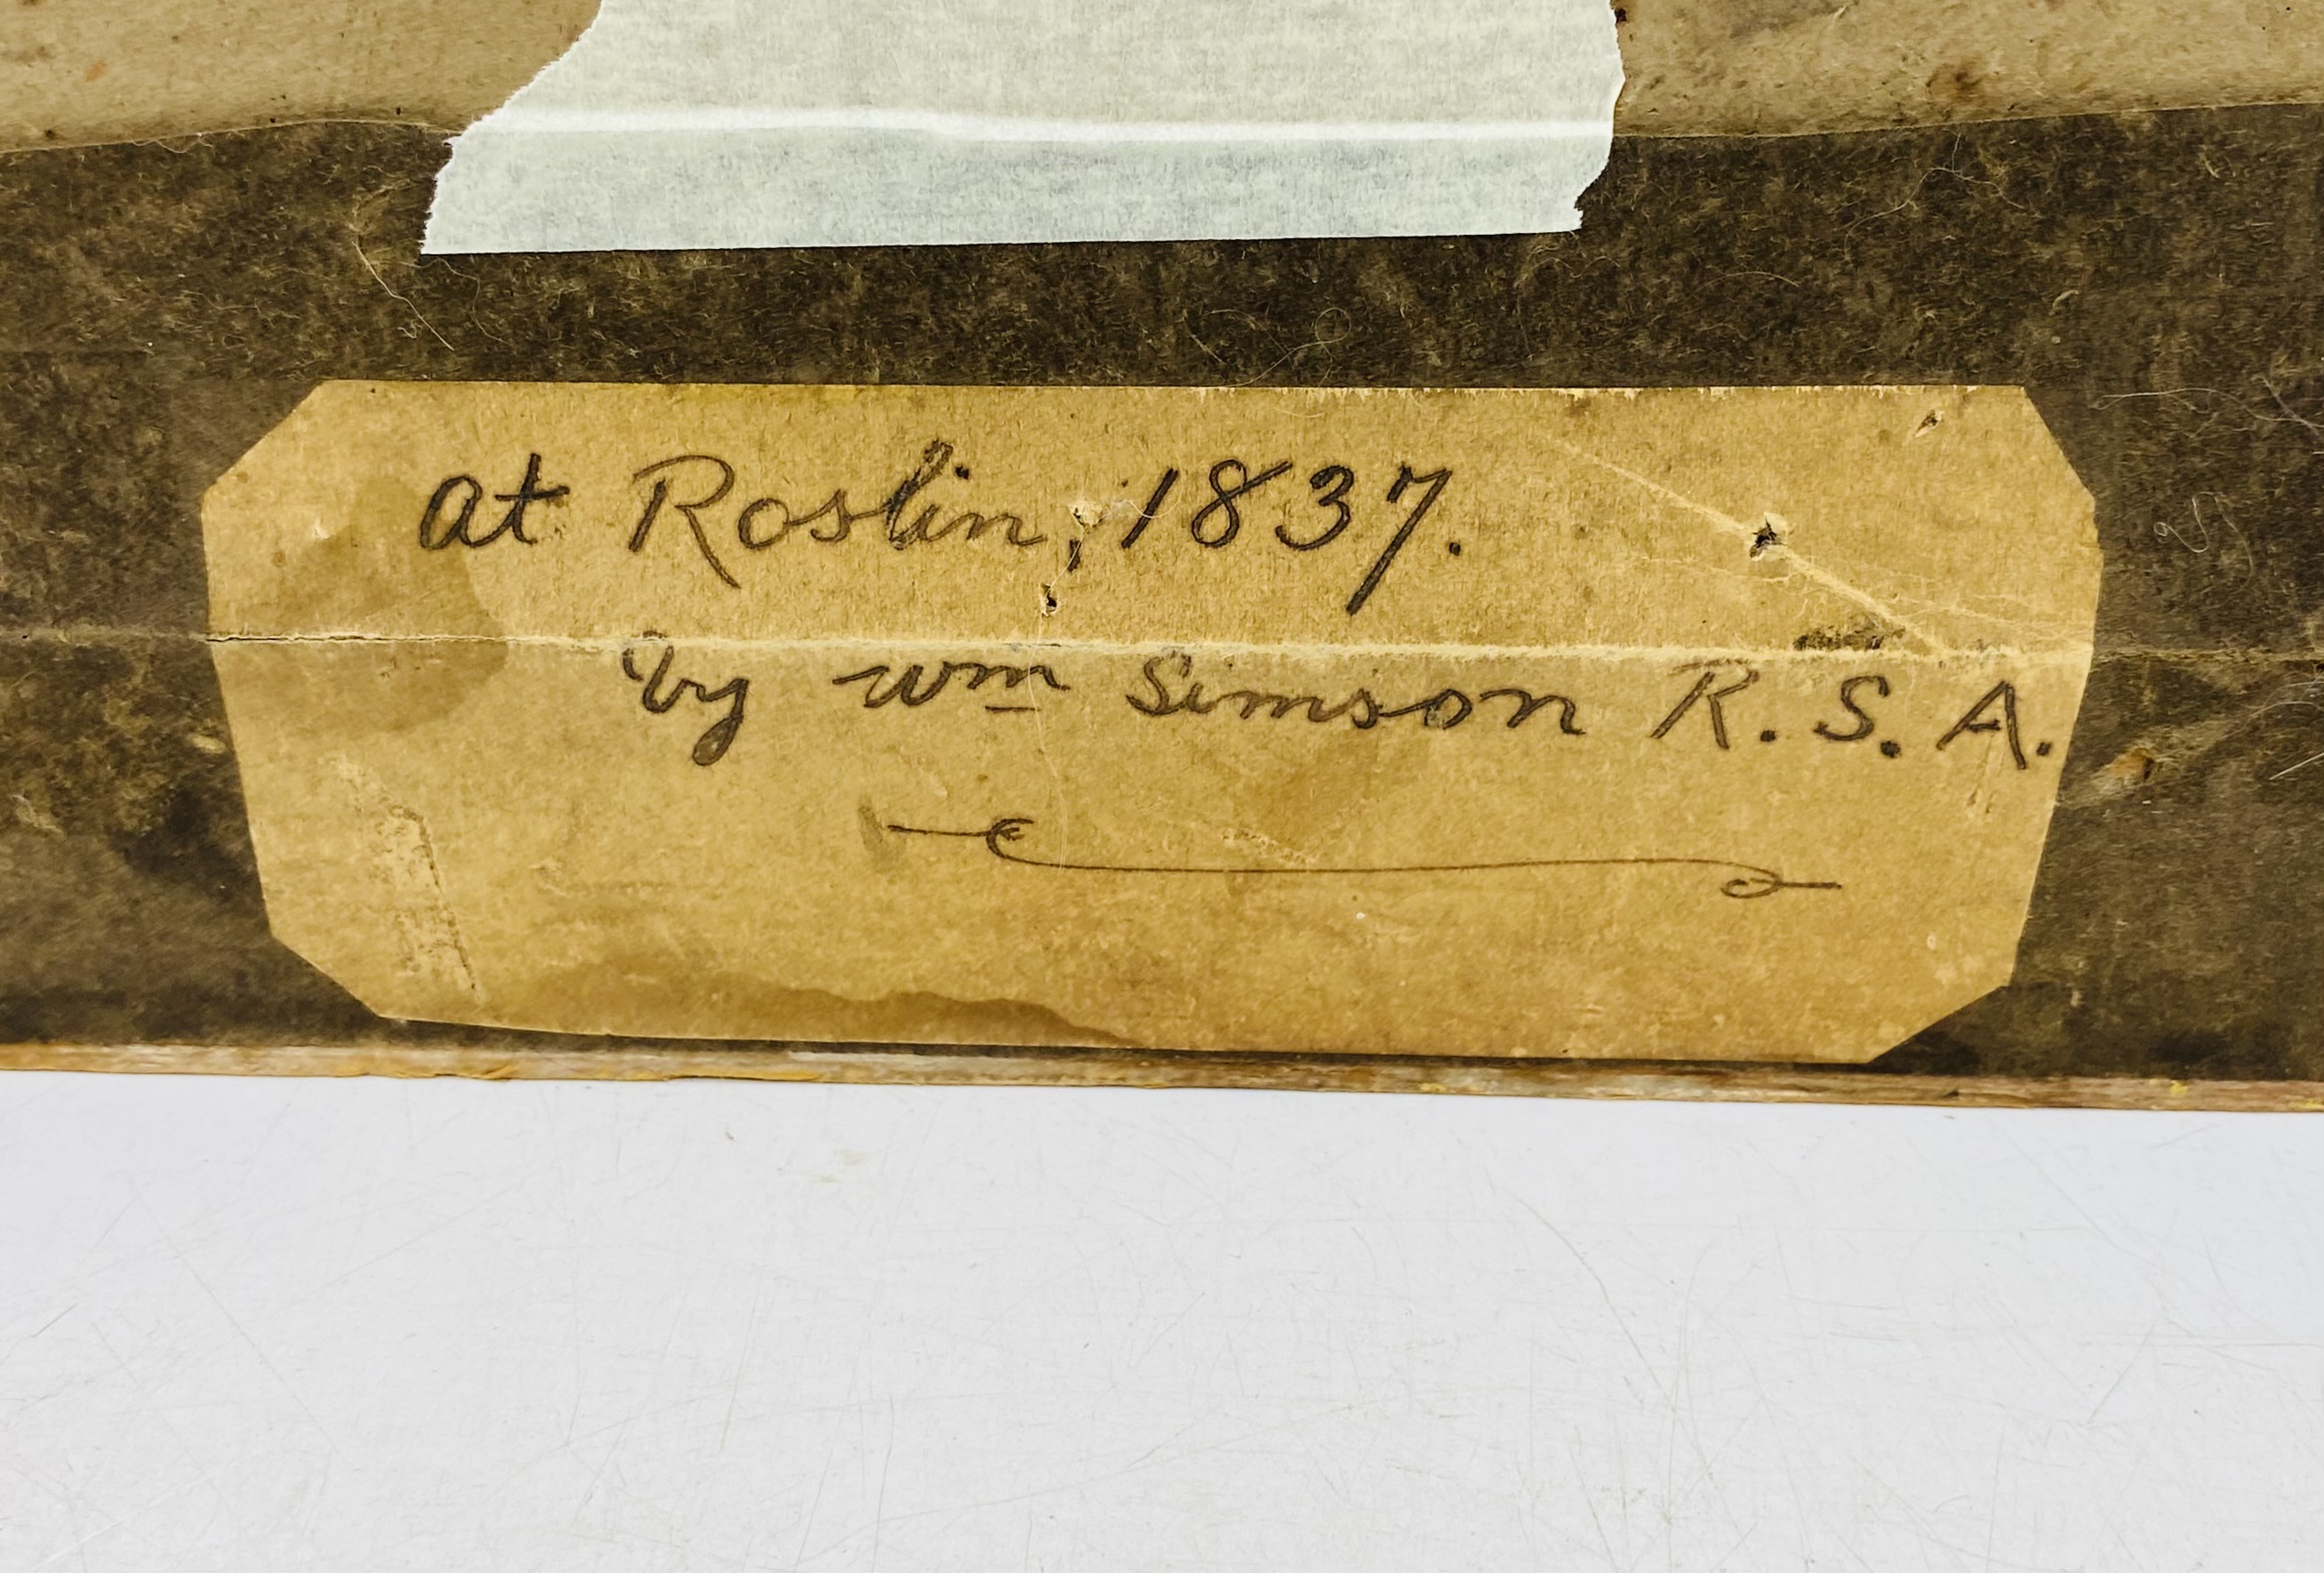 at Roslin, 1837.
by Wm Simson R. S. A.